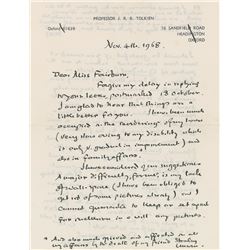 PROFESSOR J. R. R. TOLKIEN
Oxford 61639
76 SANDFIELD ROAD
HEADINGTON
OXFORD
Nov. 4th. 1968.
Dear Miss Fairburn,
Forgive my delay in replying
to your letter, postmarked 13 October.
I am glad to hear that things are a
little better for you. I have been much
occupied with the reordering of my house
(very slow owing to my disability, which
is only a gradual improvement) and
also in family affairs.
I have considered all your suggestions
a major difficulty, for me, is my lack
of wall-space (I have been obliged to
get rid of some pictures already) and I
cannot guarantee to keep or set up
for me any
pictures.
* And also much grieved and affected in all
my affairs by the death of my friend Stanley